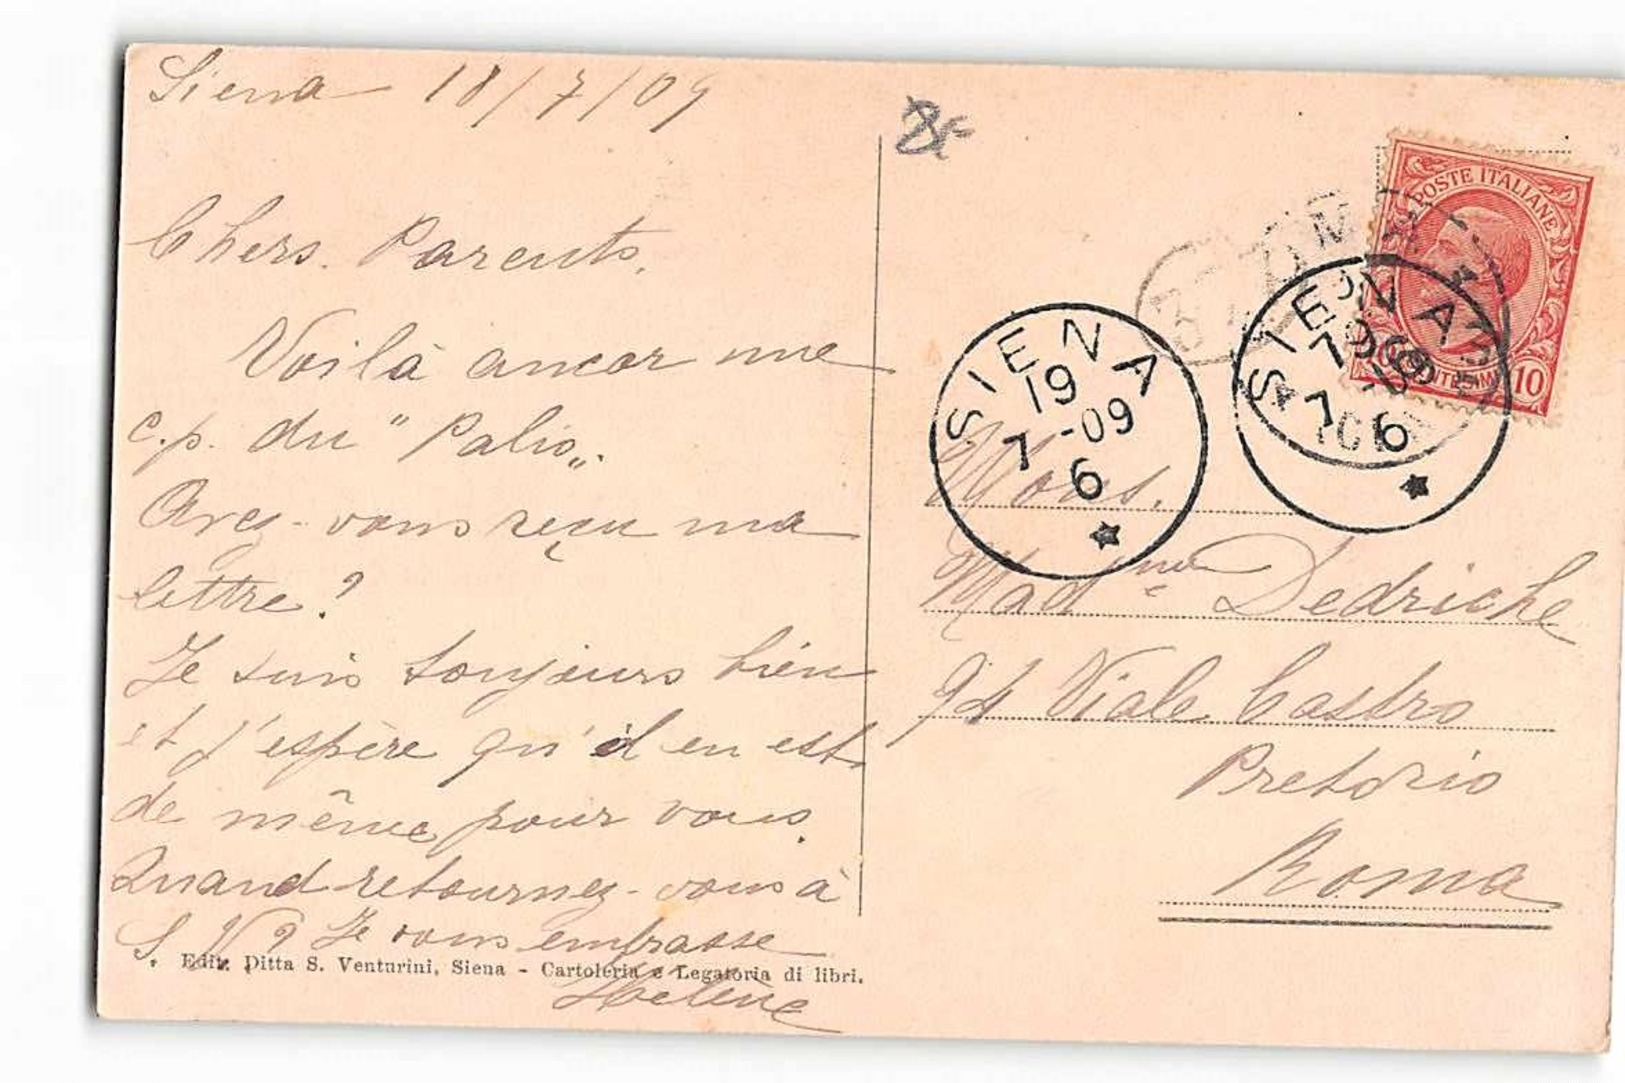 Siena 18/7/09
Chers Parents,
Voilà ancor une
c.p. du "Palio".
Avez-vous reçu ma
lettre?
Je suis toujours bien
et j'espère qu'il en est
de même pour vous.
Quand retournez-vous à
S. V? Je vous embrasse
Hélène
Edit. Ditta S. Venturini, Siena - Cartoleria e Legatoria di libri.
8
POSTE ITALIANE
10
ROMA
SIENA
19
7-09
6
SIENA
19
7
6
Mons.
Mad^me Dedriche
94 Viale Castro
Pretorio
Roma